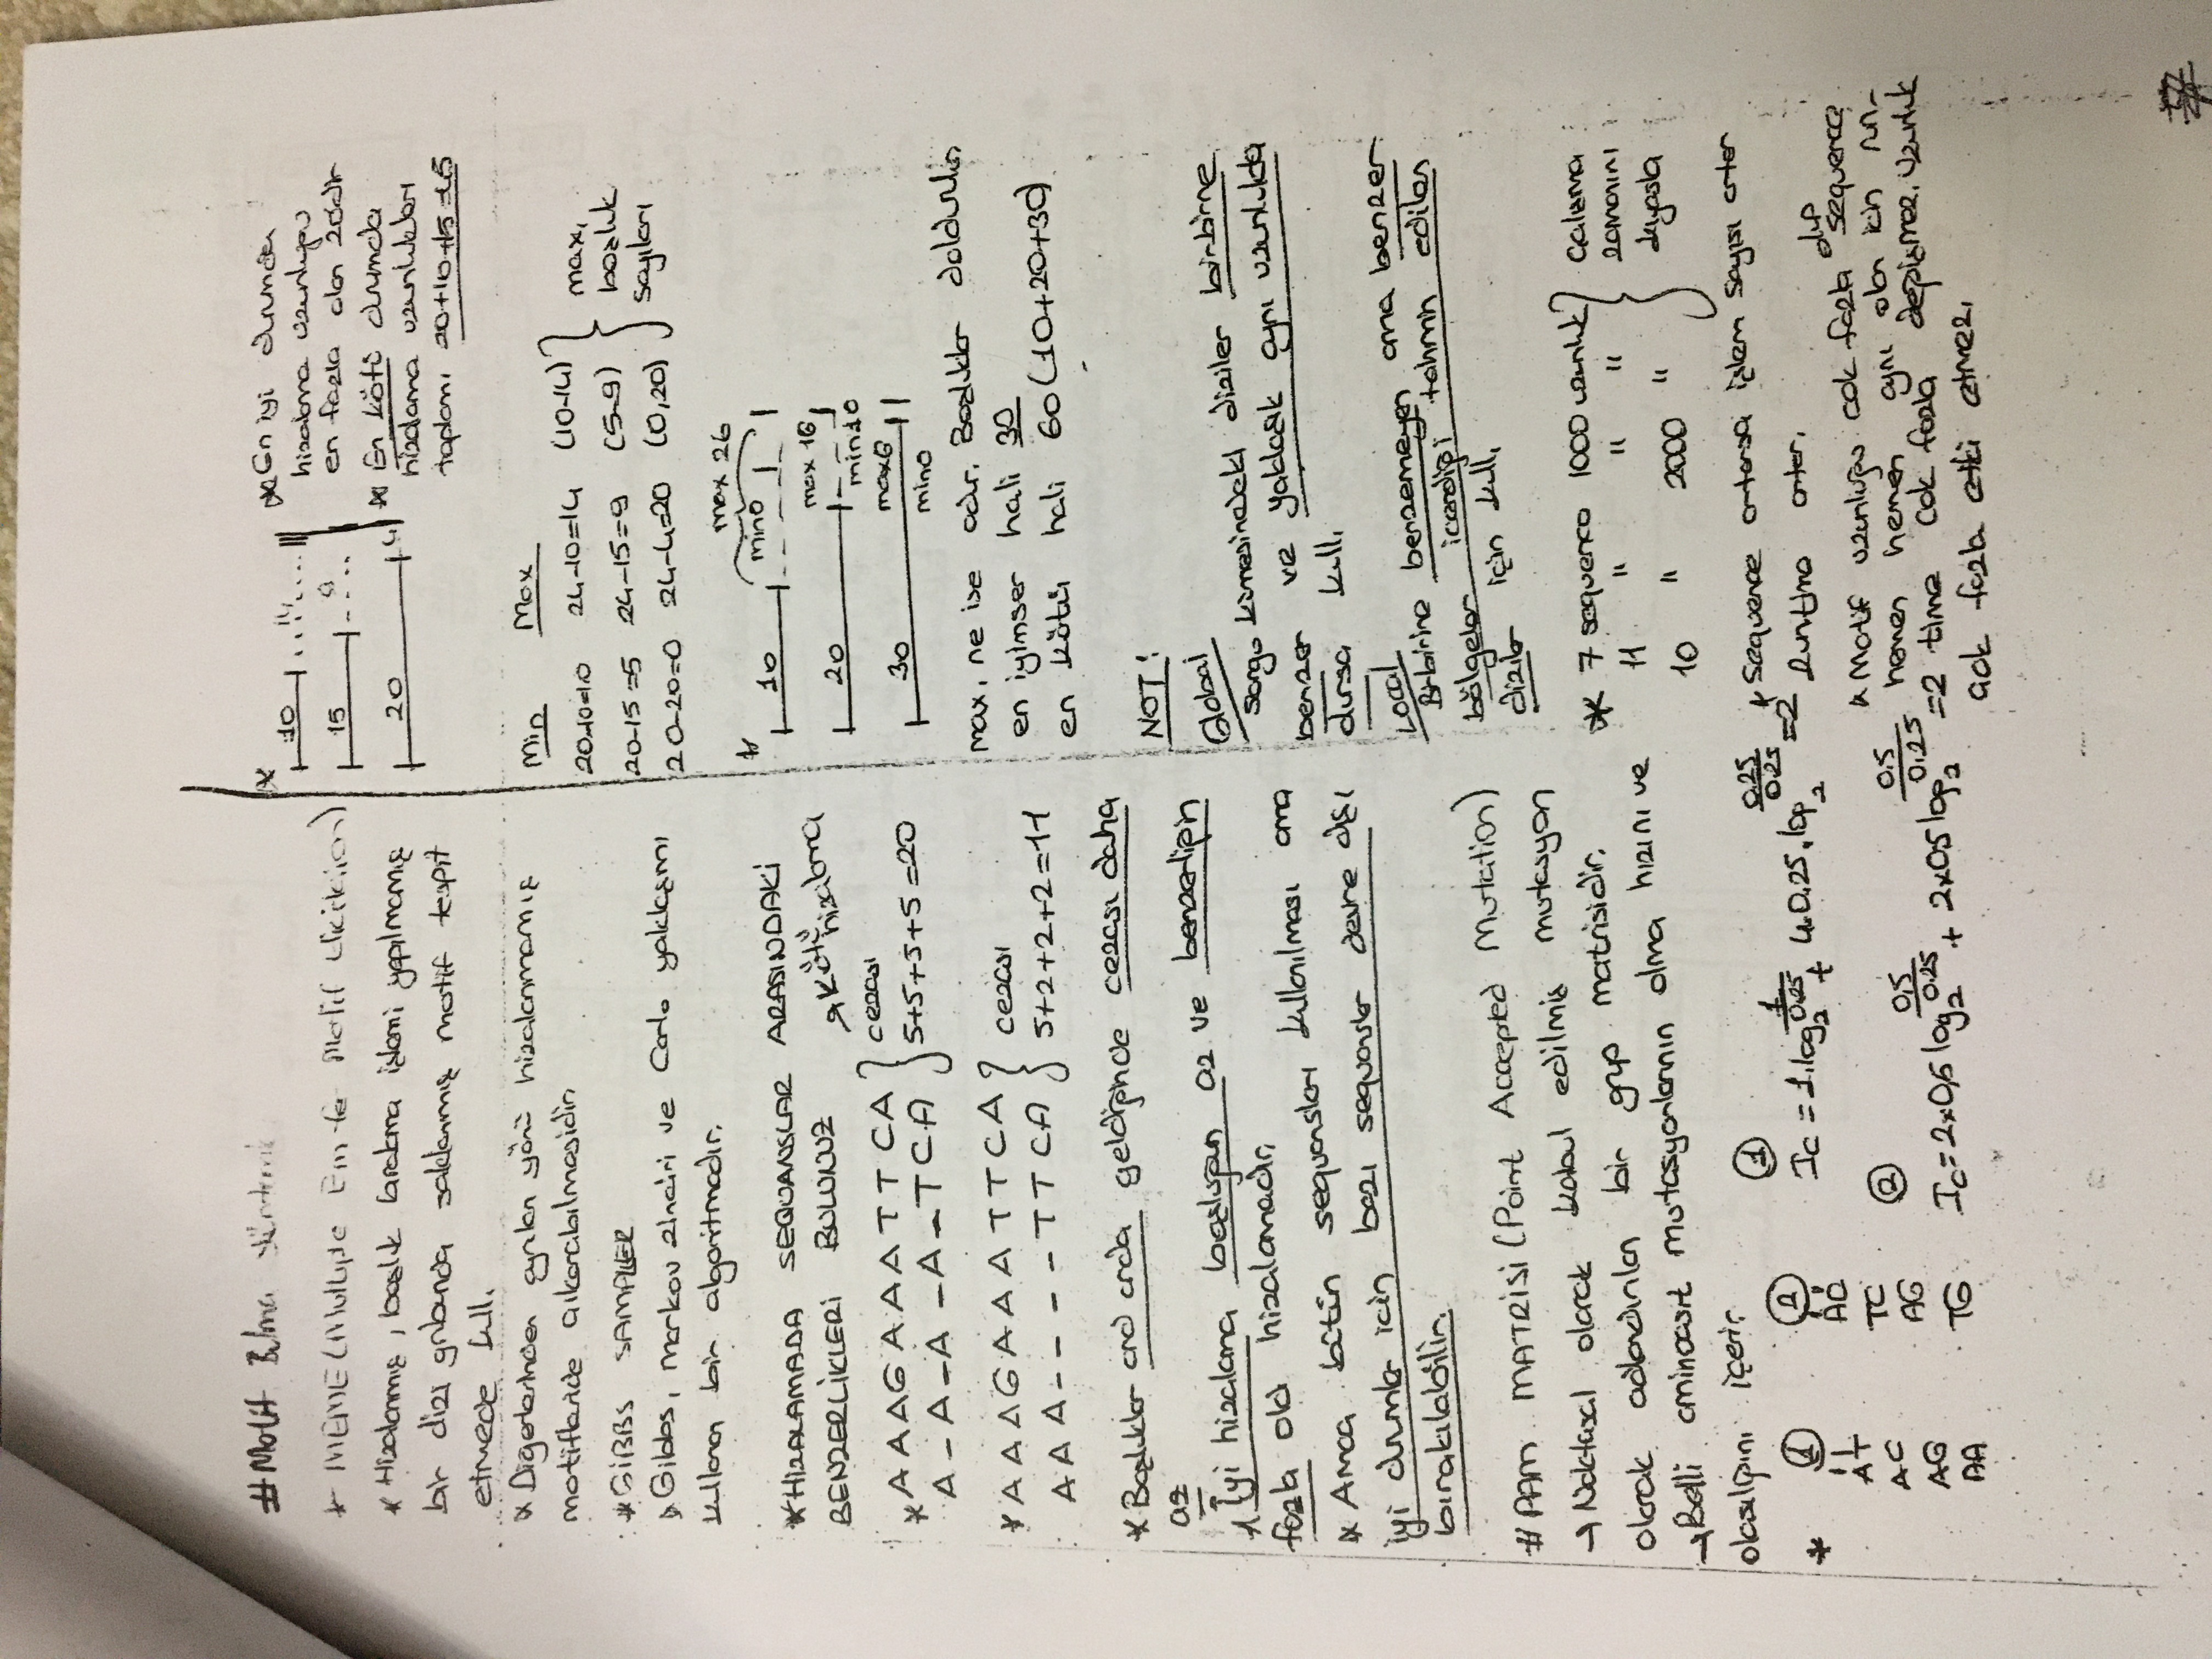 #Motif Bulma Yöntemi
* MEME (Multiple Em for Motif Elicitation)
* Hizalanmış, boşluk taralama işlemi yapılmamış
bir dizi grubunda saklanmış motif tespit
etmede kull.
* Diğerlerinden ayrılan yönü hizalanmamış
motifleride çıkarabilmesidir.
* GİBBS SAMPLER
* Gibbs, markov zinciri ve Carlo yaklaşımı
kullanan bir algoritmadır.
* HİZALAMADA SEQUANSLAR ARASINDAKİ
BENZERLİKLERİ BULUNUZ
→ Kötü hizalama
* A A A G A A A T T C A } cezası
A _ A _ A _ A _ T C A 5+5+5+5=20
* A A A G A A A T T C A } cezası
A A A - - - - T T C A 5+2+2+2=11
* Boşluklar ard arda geldiğinde cezası daha
az
* İyi hizalama boşluğun az ve benzerliğin
fazla old hizalamadır.
* Amaç bütün sequansları kullanılması ama
iyi durumlar için bazı sequanslar devre dışı
bırakılabilir.
# PAM MATRİSİ (Point Accepted Mutation)
→ Noktasal olarak kabul edilmiş mutasyon
olarak adlandırılan bir grup matrisidir.
→ Belli aminoasit mutasyonlarının olma hızını ve
olasılığını içerir.
* ① ②
AT AC
AC TC
AG AG
AA TG
① Ic = 1.log2 1/0.25 + 4.0.25.log2 0.25/0.25 = 2
② Ic = 2x0,5 log2 0.5/0.25 + 2x0.5 log2 0.5/0.25 = 2
* 10 14
15 9
20 4
* En iyi durumda
hizalama uzunluğu
en fazla olan 20'dir
* En kötü durumda
hizalama uzunlukları
toplamı 20+10+15=45
Min Max
20-10=10 24-10=14 (10-14)
20-15=5 24-15=9 (5-9)
20-20=0 24-4=20 (0,20)
} max.
boşluk
sayıları
max 26
* 10 min0
max 16
20 min10
max6
30 min0
max. ne ise odur. Boşluklar doldurulur
en iyimser hali 30
en kötü hali 60 (10+20+30)
NOT!
Global
Sorgu kümesindeki diziler birbirine
benzer ve yaklaşık aynı uzunlukta
dırsa kull.
Local
Birbirine benzemeyen ama benzer
bölgeler içerdiği tahmin edilen
diziler için kull.
* 7 sequence 1000 uzunluk } çalışma
11 " " " zamanını
10 " 2000 " kıyasla
* Sequence artarsa işlem sayısı artar
Runtime artar.
* Motif uzunluğu çok fazla olup sequence
hemen hemen aynı olan için run-
time çok fazla değişmez. Uzunluk
çok fazla etki etmez.